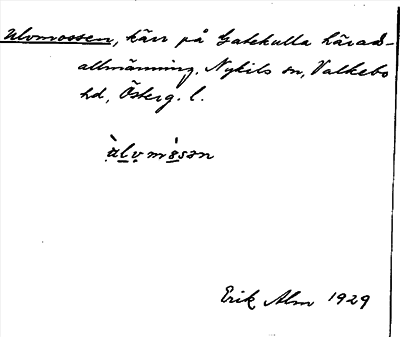 Ulvmossen, kärr på Gatekulla härads-
allmänning. Nykils sn, Valkebo
hd, Österg. l.
ùlvmòsən
Erik Alm 1929